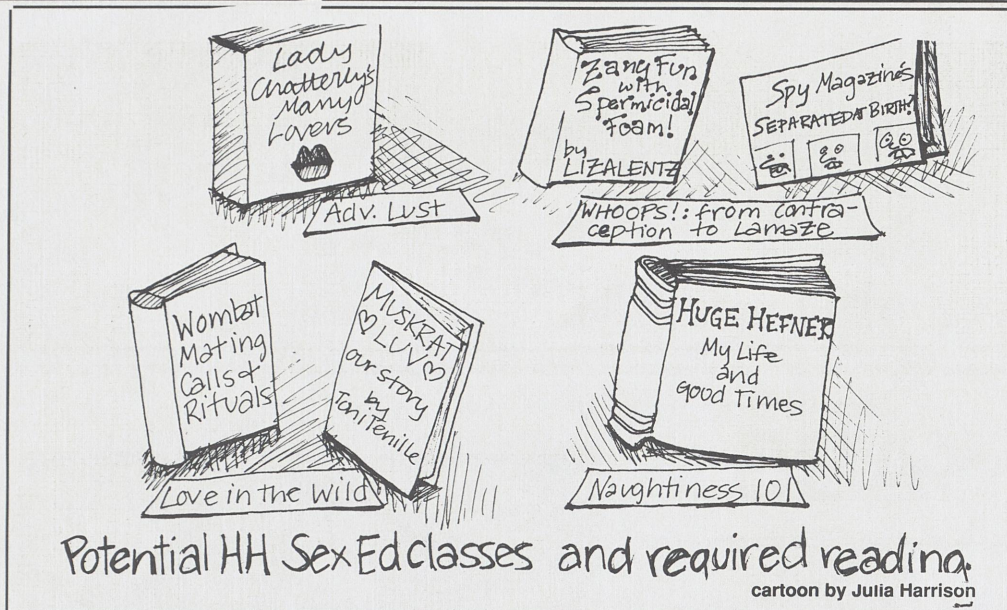 Lady
Chatterly's
Many
Lovers
Adv. Lust
Zany Fun
with
Spermicidal
Foam!
by
LIZALENTZ
Spy Magazine's
SEPARATED AT BIRTH?
WHOOPS!: from contra-
ception to Lamaze
Wombat
Mating
Calls &
Rituals
MUSKRAT
LUV
our story
by
Toni Tenille
Love in the Wild
HUGE HEFNER
My Life
and
Good Times
Naughtiness 101
Potential HH Sex Ed classes and required reading.
cartoon by Julia Harrison